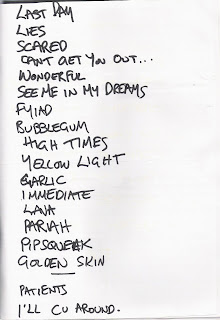 LAST DAY
LIES
SCARED
CANT GET YOU OUT...
WONDERFUL
SEE ME IN MY DREAMS
FYIAD
BUBBLEGUM
HIGH TIMES
YELLOW LIGHT
GARLIC
IMMEDIATE
LAVA
PARIAH
PIPSQUEAK
GOLDEN SKIN
PATIENTS
I'LL CU AROUND.